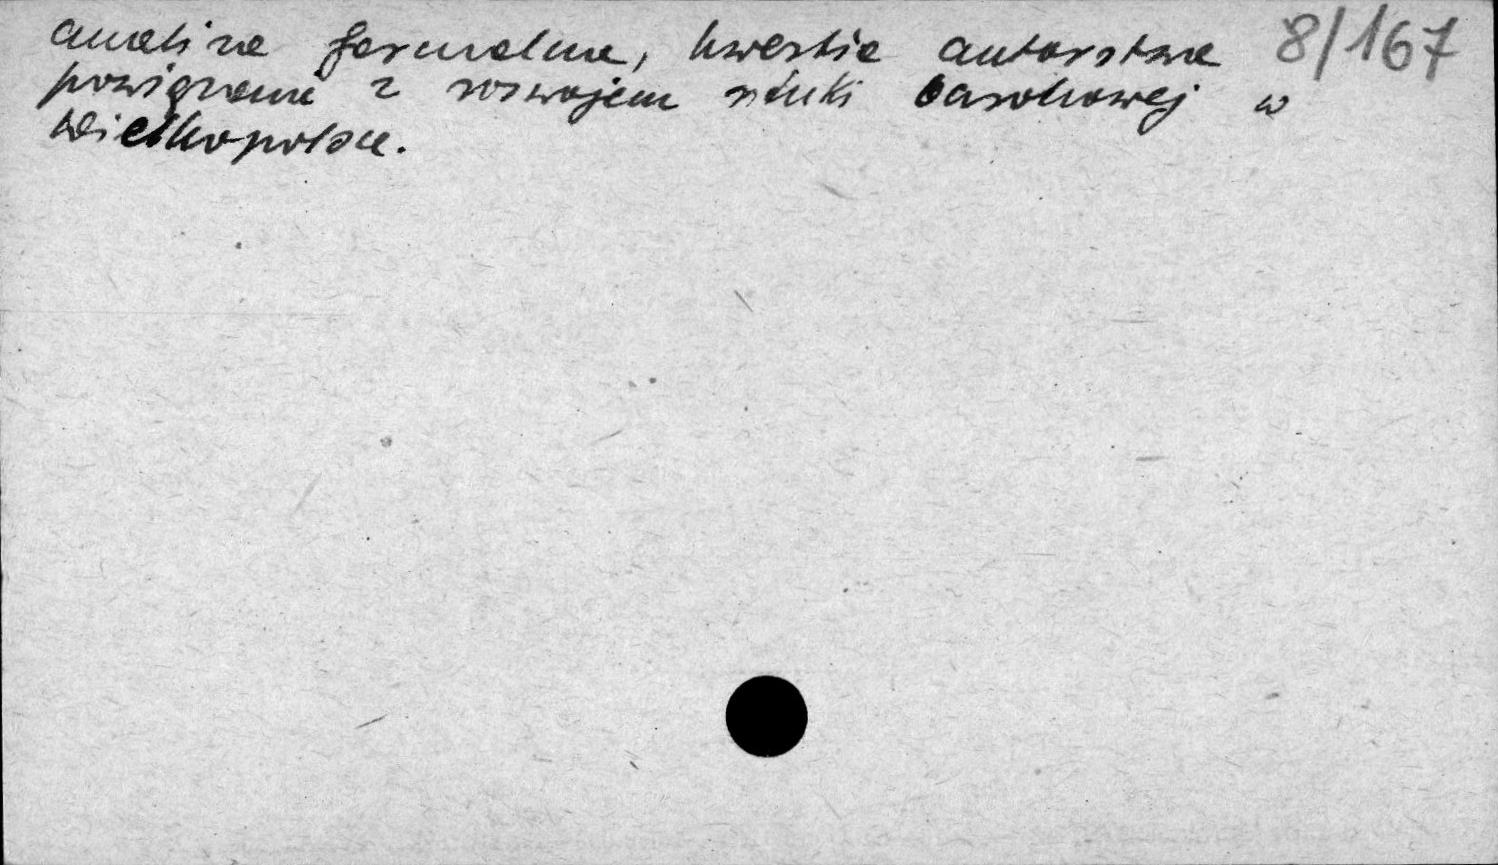 analiza formalna, kwestia autorstwa 8/167
powiązania z rozwojem sztuki barokowej w
Wielkopolsce.